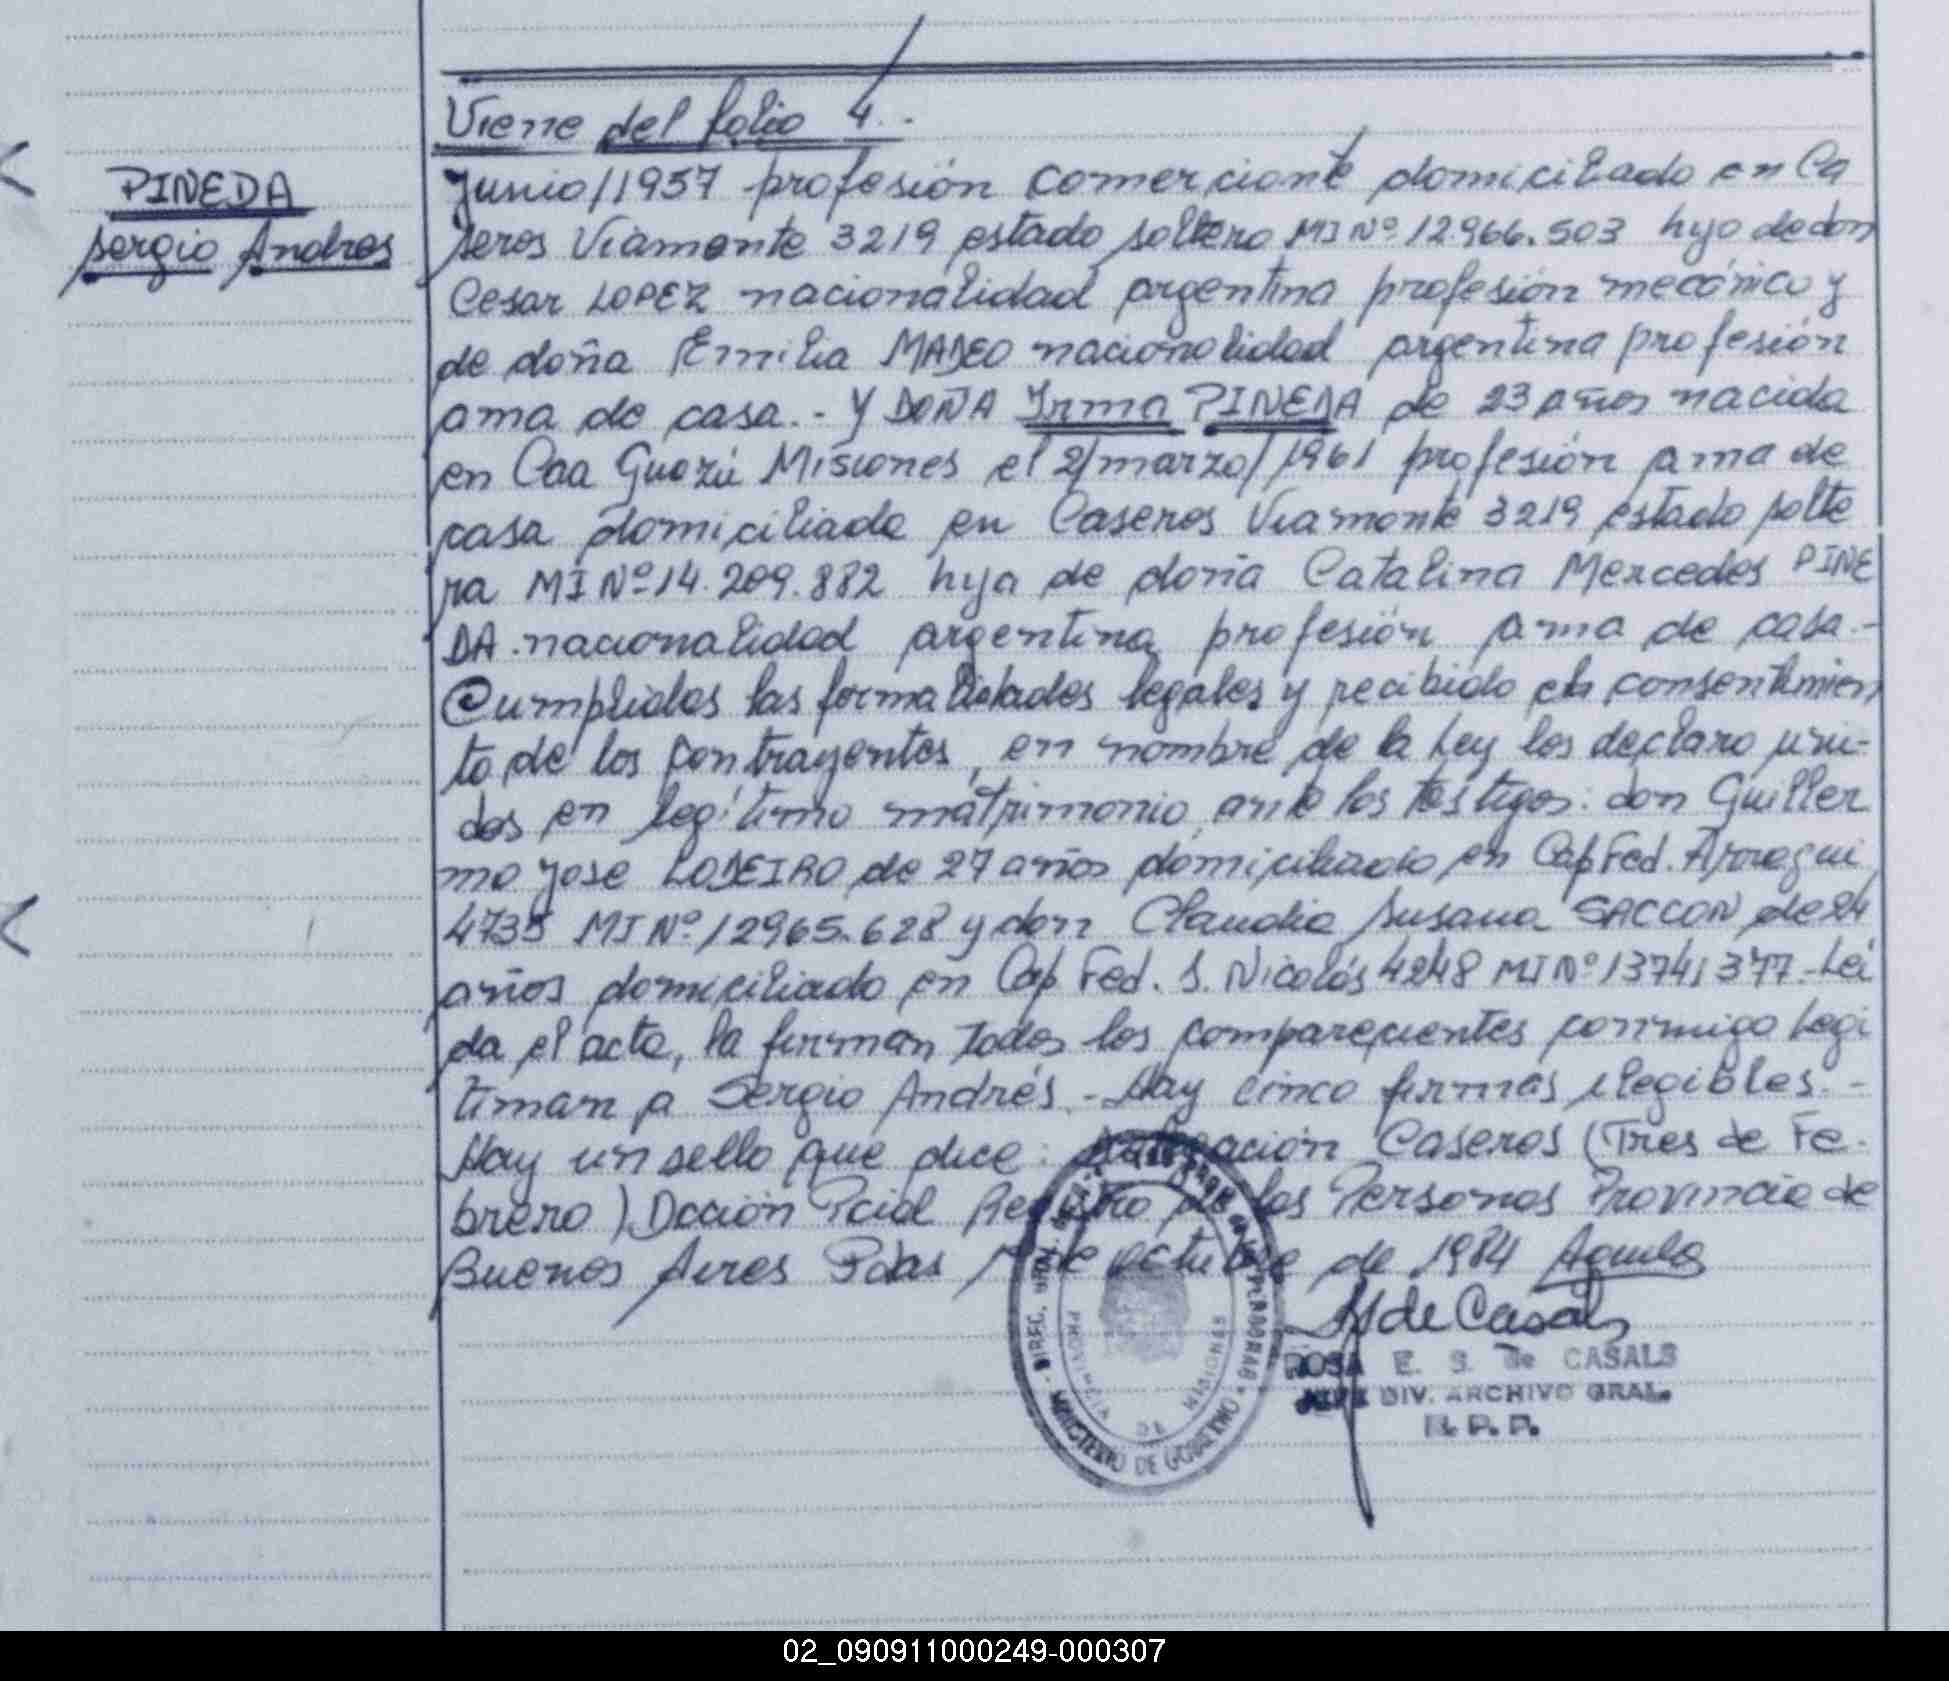 Viene del folio 4.-
PINEDA
Sergio Andres
Junio/1957 profesión comerciante domiciliado en Ca
seros Viamonte 3219 estado soltero MI Nº 12.966.503 hijo de don
Cesar LOPEZ nacionalidad argentina profesión mecánico y
de doña Emilia MADEO nacionalidad argentina profesión
ama de casa.- Y DOÑA Irma PINEDA de 23 años nacida
en Caa Guazú Misiones el 2/marzo/1961 profesión ama de
casa domiciliada en Caseros Viamonte 3219 estado solte
ra MI Nº 14.209.882 hija de doña Catalina Mercedes PINE
DA nacionalidad argentina profesión ama de casa.-
Cumplidas las formalidades legales y recibido el consentimien
to de los contrayentes, en nombre de la Ley los declaro uni-
dos en legítimo matrimonio ante los testigos: don Guiller
mo Jose LODEIRO de 27 años domiciliado en Cap Fed. Arregui
4735 MI Nº 12965.628 y don Claudia Susana SACCON de 24
años domiciliado en Cap Fed. S. Nicolás 4248 MI Nº 13741377.- Leí
da el acta, la firman todos los comparecientes conmigo Legi
timan a Sergio Andrés.- Hay cinco firmas ilegibles.-
Hay un sello que dice: Delegación Caseros (Tres de Fe-
brero) Dcción Pcial Registro de las Personas Provincia de
Buenos Aires Pdas de octubre de 1984
de Casals
ROSA E. S. de CASALS
JEFE DIV. ARCHIVO GRAL.
R. P. P.
MINISTERIO DE GOBIERNO
PROVINCIA DE MISIONES
02_090911000249-000307